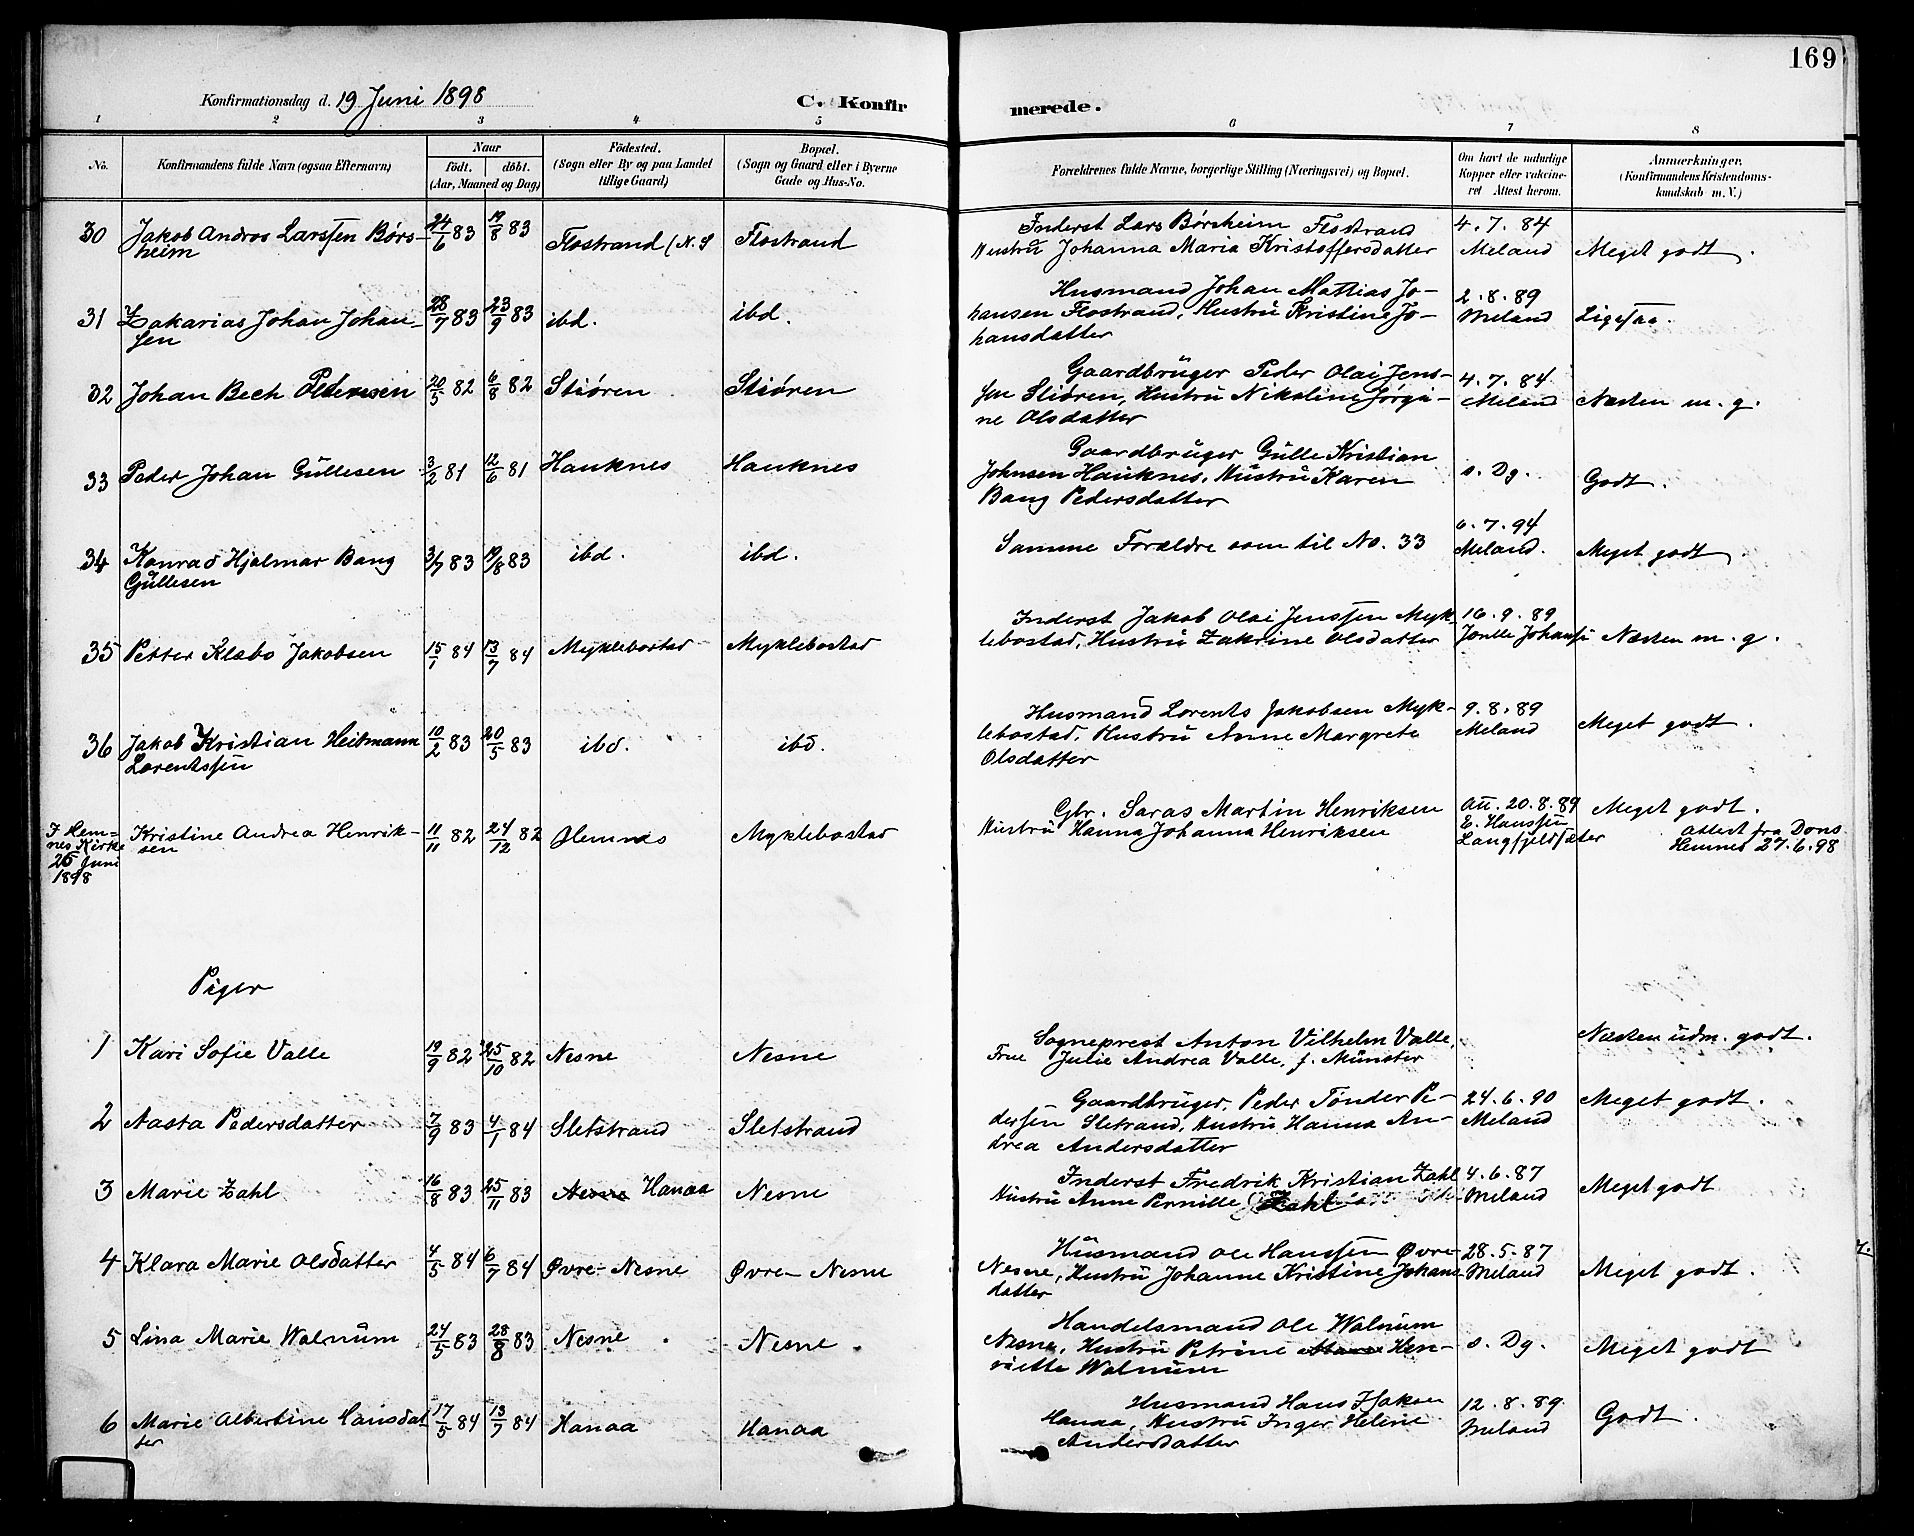 169
Konfirmationsdag d. 19 Juni 1898
C. Konfirmerede.
1 2 3 4 5 6 7 8
No.
Konfirmandens fulde Navn (ogsaa Efternavn)
Naar
födt. döbt.
(Aar, Maaned og Dag)
Födested.
(Sogn eller By og paa Landet
tillige Gaard)
Bopæl.
(Sogn og Gaard eller i Byerne
Gade og Hus-No.
Forældrenes fulde Navne, borgerlige Stilling (Næringsvei) og Bopæl.
Om havt de naturlige
Kopper eller vakcine-
ret Attest herom.
Anmærkninger.
(Konfirmandens Kristendoms-
kundskab m. V.)
30 Jakob Andros Larssen Børs-
heim
24/6 83 19/8 83 Flostrand (N. S Flostrand
Inderst Lars Børsheim Flostrand
Hustru Johanna Maria Kristoffersdatter
4.7.84
Meland
Meget godt.
31 Zakarias Johan Johan-
sen
28/7 83 23/9 83 ibd. ibd.
Husmand Johan Mattias Jo-
hansen Flostrand, Hustru Kristine Jo-
hansdatter
2.8.89
Meland
Ligesaa.
32 Johan Bech Pedersen
20/5 82 6/8 82 Stiøren Stiøren
Gaardbrüger Peder Olai Jens-
sen Stiøren, Hustrü Nikoline Jørgi-
ne Olsdatter
4.7.84
Meland
Næsten m. g.
33 Peder Johan Güllesen
3/2 81 12/6 81 Hauknes Hauknes
Gaardbrüger Gülle Kristian
Johnsen Hauknes, Hustrü Karen
Bang Pedersdatter
s. Dg.
Godt.
34 Konrad Hjalmar Bang
Güllesen
3/7 83 19/8 83 ibd. ibd.
Samme Forældre som til No. 33
6.7.94
Meland.
Meget godt
35 Petter Klæbo Jakobsen
15/1 84 13/7 84 Myklebostad Myklebostad
Inderst Jakob Olai Jenssen Myk
lebostad, Hustrü Zakrine Olsdatter
16.9.89
Næsten m. g.
36 Jakob Kristian Heitmann
Lorentssen
10/2 83 20/5 83 ibd. ibd.
Husmand Lorents Jakobsen Myk-
lebostad, Hustrü Anne Margrete
Olsdatter
9.8.89
Meland
Meget godt.
I Hem=
nes Kirke
26 Juni
1898
Kristine Andrea Henrik-
sen
11/11 82 24/12 82 Hemnes Myklebostad
Gbr. Saras Martin Henriksen
Hustrü Hanna Johanna Henriksen
20.8.89
E. Hanssen
Langfjeldsæter
Meget godt.
attest fra
Hemnes 27.6.98
Piger
1 Kari Sofie Valle
19/9 82 25/10 82 Nesne Nesne
Sogneprest Anton Vilhelm Valle,
Frue Julie Andrea Valle, f. Münster
Næsten üdm. godt.
2 Aasta Pedersdatter
7/9 83 4/1 84 Sletstrand Sletstrand
Gaardbrüger, Peder Tønder Pe-
dersen Sletrand, Hustrü Hanna An-
drea Andersdatter
24.6.90
Meland
Meget godt.
3 Marie Zahl
16/8 83 25/11 83 Nesne Hanaa Nesne
Inderst Fredrik Kristian Zahl
Hustrü Anne Pernille Zahl
4.6.87
Meland
Meget godt
4 Klara Marie Olsdatter
4/5 84 6/7 84 Øvre-Nesne Øvre-Nesne
Hüsmand Ole Hanssen Øvre-
Nesne, Hustrü Johanne Kristine Johans
datter
28.5.87
Meland
Meget godt.
5 Lina Marie Walnüm
24/5 83 28/8 83 Nesne Nesne.
Handelsmand Ole Walnüm
Nesne, Hustrü Petrine Hen-
riette Walnüm
s. Dg.
Meget godt
6 Marie Albertine Hansdat
ter
17/5 84 13/7 84 Hanaa Hanaa
Husmand Hans Isaksen
Hanaa, Hustrü Inger Heline
Andersdatter
12.8.89
Meland
Godt.